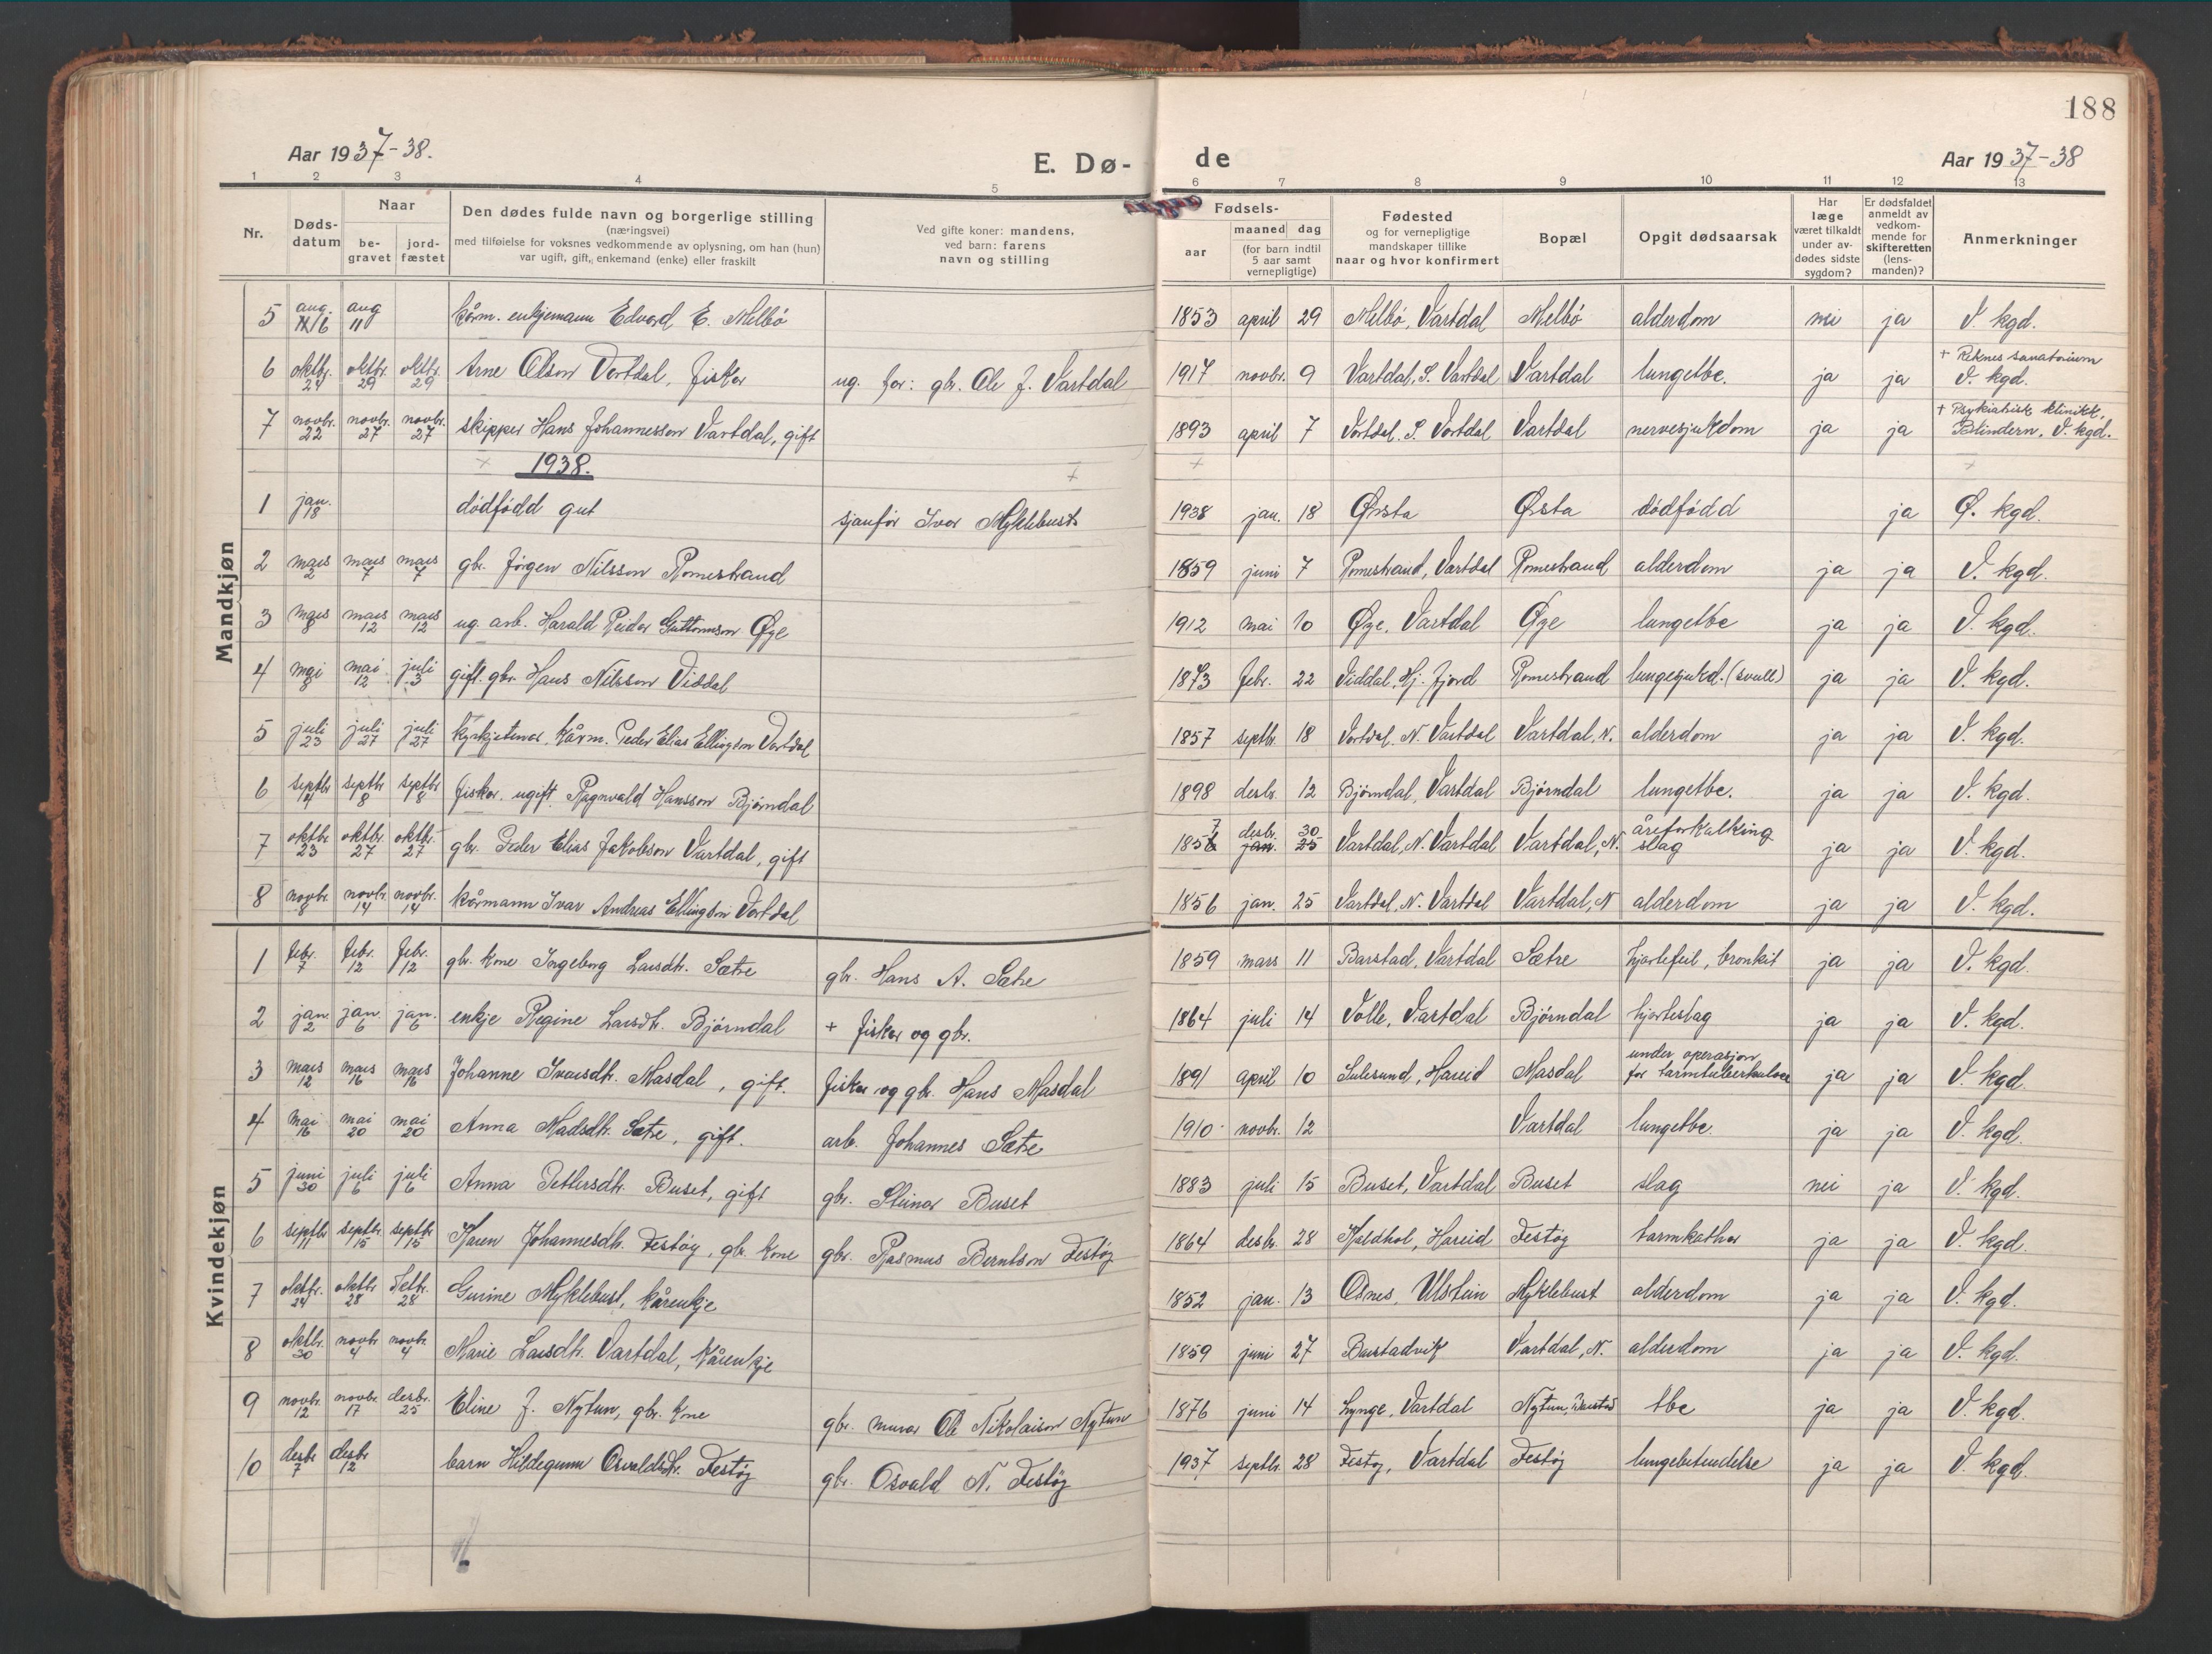 188
Aar 1937-38.
E. Dø- de
Aar 1937-38
1 2 3 4 5 6 7 8 9 10 11 12 13
Nr.
Døds-
datum
Naar
be-
gravet
jord-
fæstet
Den dødes fulde navn og borgerlige stilling
(næringsvei)
med tilføielse for voksnes vedkommende av oplysning, om han (hun)
var ugift, gift, enkemand (enke) eller fraskilt
Ved gifte koner: mandens,
ved barn: farens
navn og stilling
Fødsels-
aar
maaned dag
(for barn indtil
5 aar samt
vernepligtige)
Fødested
og for vernepligtige
mandskaper tillike
naar og hvor konfirmert
Bopæl
Opgit dødsaarsak
Har
læge
været tilkaldt
under av-
dødes sidste
sygdom?
Er dødsfaldet
anmeldt av
vedkom-
mende for
skifteretten
(lens-
manden)?
Anmerkninger
Mandkjøn
5 aug. 6 aug 11 kårm. enkjemann Edvard E. Melbö 1853 april 29 Melbö, Vartdal Melbö alderdom nei ja V. kgd.
6 oktbr. 24 oktbr. 29 oktbr. 29 Arne Olson Vartdal, fisker ug. far: gbr. Ole J. Vartdal 1917 novbr. 9 Vartdal, S. Vartdal Vartdal lungetbc. ja ja + Reknes sanatorium V. kgd.
7 novbr. 22 novbr. 27 novbr. 27 skipper Hans Johannesson Vartdal, gift 1893 april 7 Vartdal, S. Vartdal Vartdal nervesjukdom ja ja + Psykiatrisk klinikk, Blindern, V. kgd.
1938.
1 jan. 18 dödfödd gut sjanför Ivar Myklebust 1938 jan. 18 Ørsta Ørsta dödfödd ja Ø. kgd.
2 mars 2 mars 7 mars 7 gbr. Jörgen Nilsson Romestrand 1859 juni 7 Romestrand, Vartdal Romestrand alderdom ja ja V. kgd.
3 mars 8 mars 12 mars 12 ug. arb. Harald Reidar Guttormson Øye 1912 mai 10 Øye, Vartdal Øye lungetbc ja ja V. kgd.
4 mai 8 mai 12 juli 3 gift. gbr. Hans Nilsson Viddal 1873 febr. 22 Viddal, Hj. fjord Romestrand lungesjukd. (svull) ja ja V. kgd.
5 juli 23 juli 27 juli 27 kyrkjetenar, kårm. Peder Elias Ellingson Vartdal 1857 septbr. 18 Vartdal, N. Vartdal Vartdal, N. alderdom ja ja V. kgd.
6 septbr 4 septbr 8 septbr 8 fisker, ugift. Ragnvald Hansson Bjørndal 1898 desbr. 12 Bjørndal, Vartdal Bjørndal lungetbc. ja ja V. kgd.
7 oktbr 23 oktbr 27 oktbr. 27 gbr. Peder Elias Jakobson Vartdal, gift 1857 desbr. jan. 30 25 Vartdal, N. Vartdal Vartdal, N. åreforkalking slag ja ja V. kgd.
8 novbr. 8 novbr. 14 novbr. 14 kårmann Ivar Andreas Ellingson Vartdal 1856 jan. 25 Vartdal, N. Vartdal Vartdal, N alderdom ja ja V. kgd.
Kvindekjøn
1 febr. 7 febr. 12 febr. 12 gbr. kone Ingeborg Larsdtr. Sætre gbr. Hans A. Sætre 1859 mars 11 Barstad, Vartdal Sætre hjartefeil, bronkit ja ja V. kgd.
2 jan. 2 jan. 6 jan. 6 enkje Regine Larsdtr. Bjørndal + fisker og gbr. 1864 juli 14 Bjørndal hjarteslag ja ja V. kgd.
3 mars 12 mars 16 mars 16 Johanne Ivarsdtr. Masdal, gift. fisker og gbr. Hans Masdal 1891 april 10 Sulesund, Hareid Masdal under operasjon for tarmtuberkulose ja ja V. kgd.
4 mai 16 mai 20 mai 20 Anna Madsdtr. Sætre, gift. arb. Johannes Sætre 1910 novbr. 12 Vartdal lungetbc ja ja V. kgd.
5 juni 30 juli 6 juli 6 Anna Pettersdtr. Buset, gift gbr. Steinar Buset 1883 juli 15 Buset, Vartdal Buset slag nei ja V. kgd.
6 septbr 11 septbr 15 septbr 15 Karen Johannesdtr. Festöy, gbr. kone gbr. Rasmus Berntson Festöy 1864 desbr. 28 Kaldhol, Hareid Festöy tarmkathar ja ja V. kgd.
7 oktbr. 24 oktbr 28 oktbr. 28 Gurine Myklebust, kårenkje 1852 jan. 13 Osnes, Ulstein Myklebust alderdom ja ja V. kgd.
8 oktbr. 30 novbr 4 novbr. 4 Marie Larsdtr. Vartdal, kårenkje 1859 juni 27 Barstadvik Vartdal, N. alderdom ja ja V. kgd.
9 novbr. 12 novbr. 17 desbr. 25 Eline J. Nytun, gbr. kone gbr. murar Ole Nikolaison Nytun 1876 juni 14 Lynge, Vartdal Nytun, Barstad tbc ja ja V. kgd.
10 desbr 7 desbr 12 barn Hildegunn Osvaldsdtr. Festöy gbr. Osvald N. Festöy 1937 septbr. 28 Festöy, Vartdal Festöy lungebetendelse ja ja V. kgd.